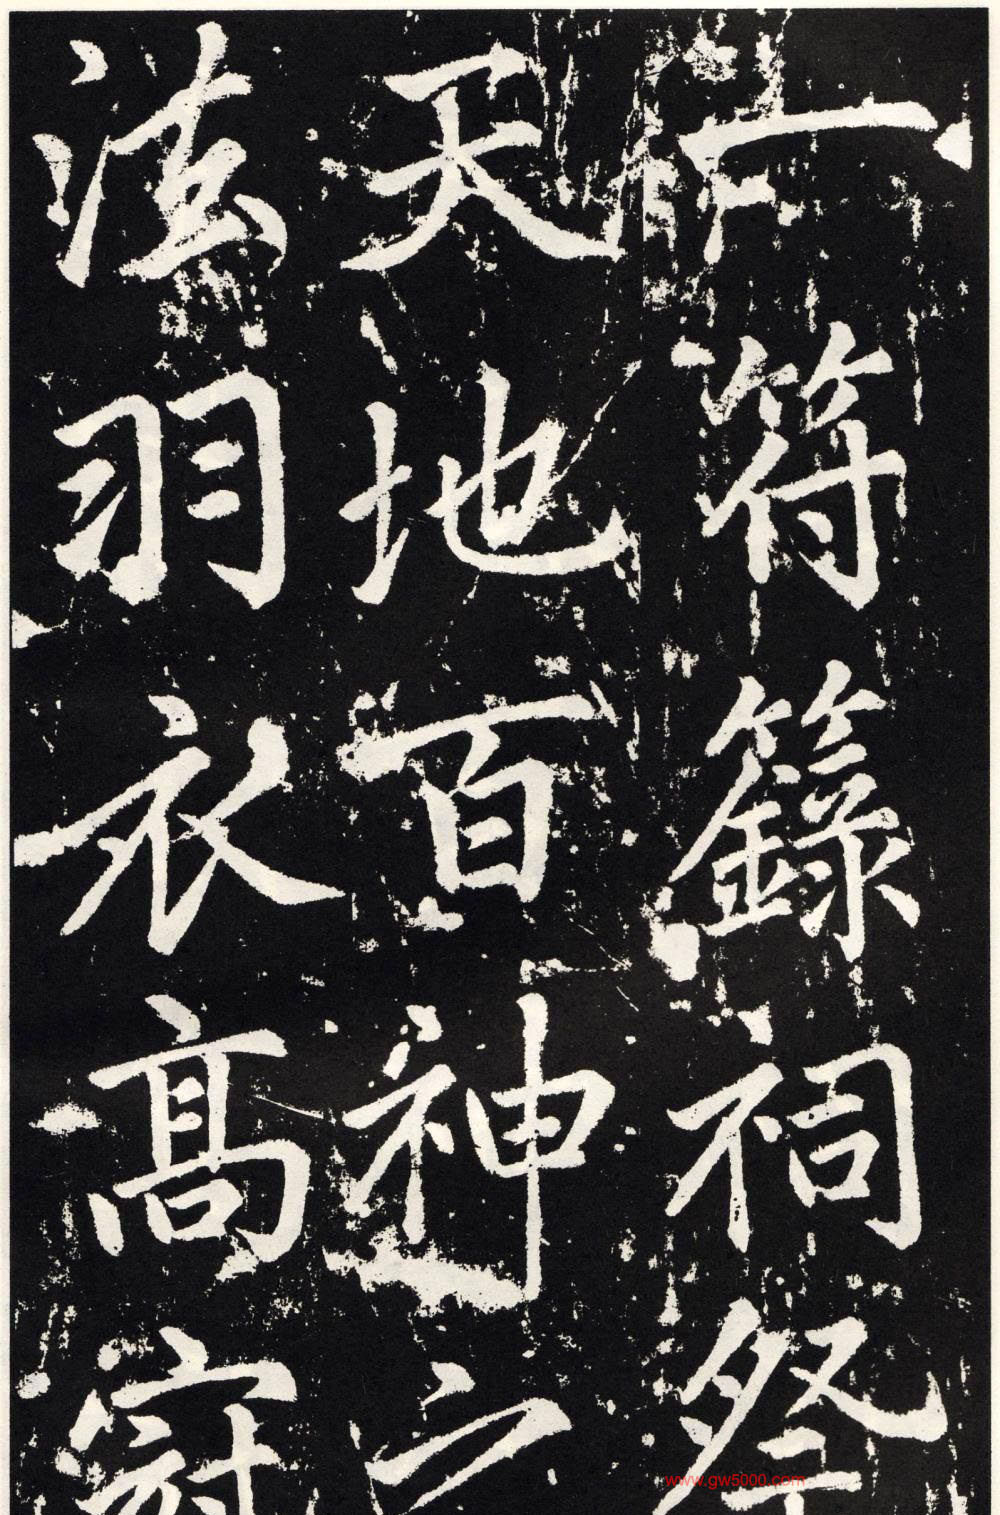 符籙祠祭
天地百神之
法羽衣高冠
www.gw5000.com